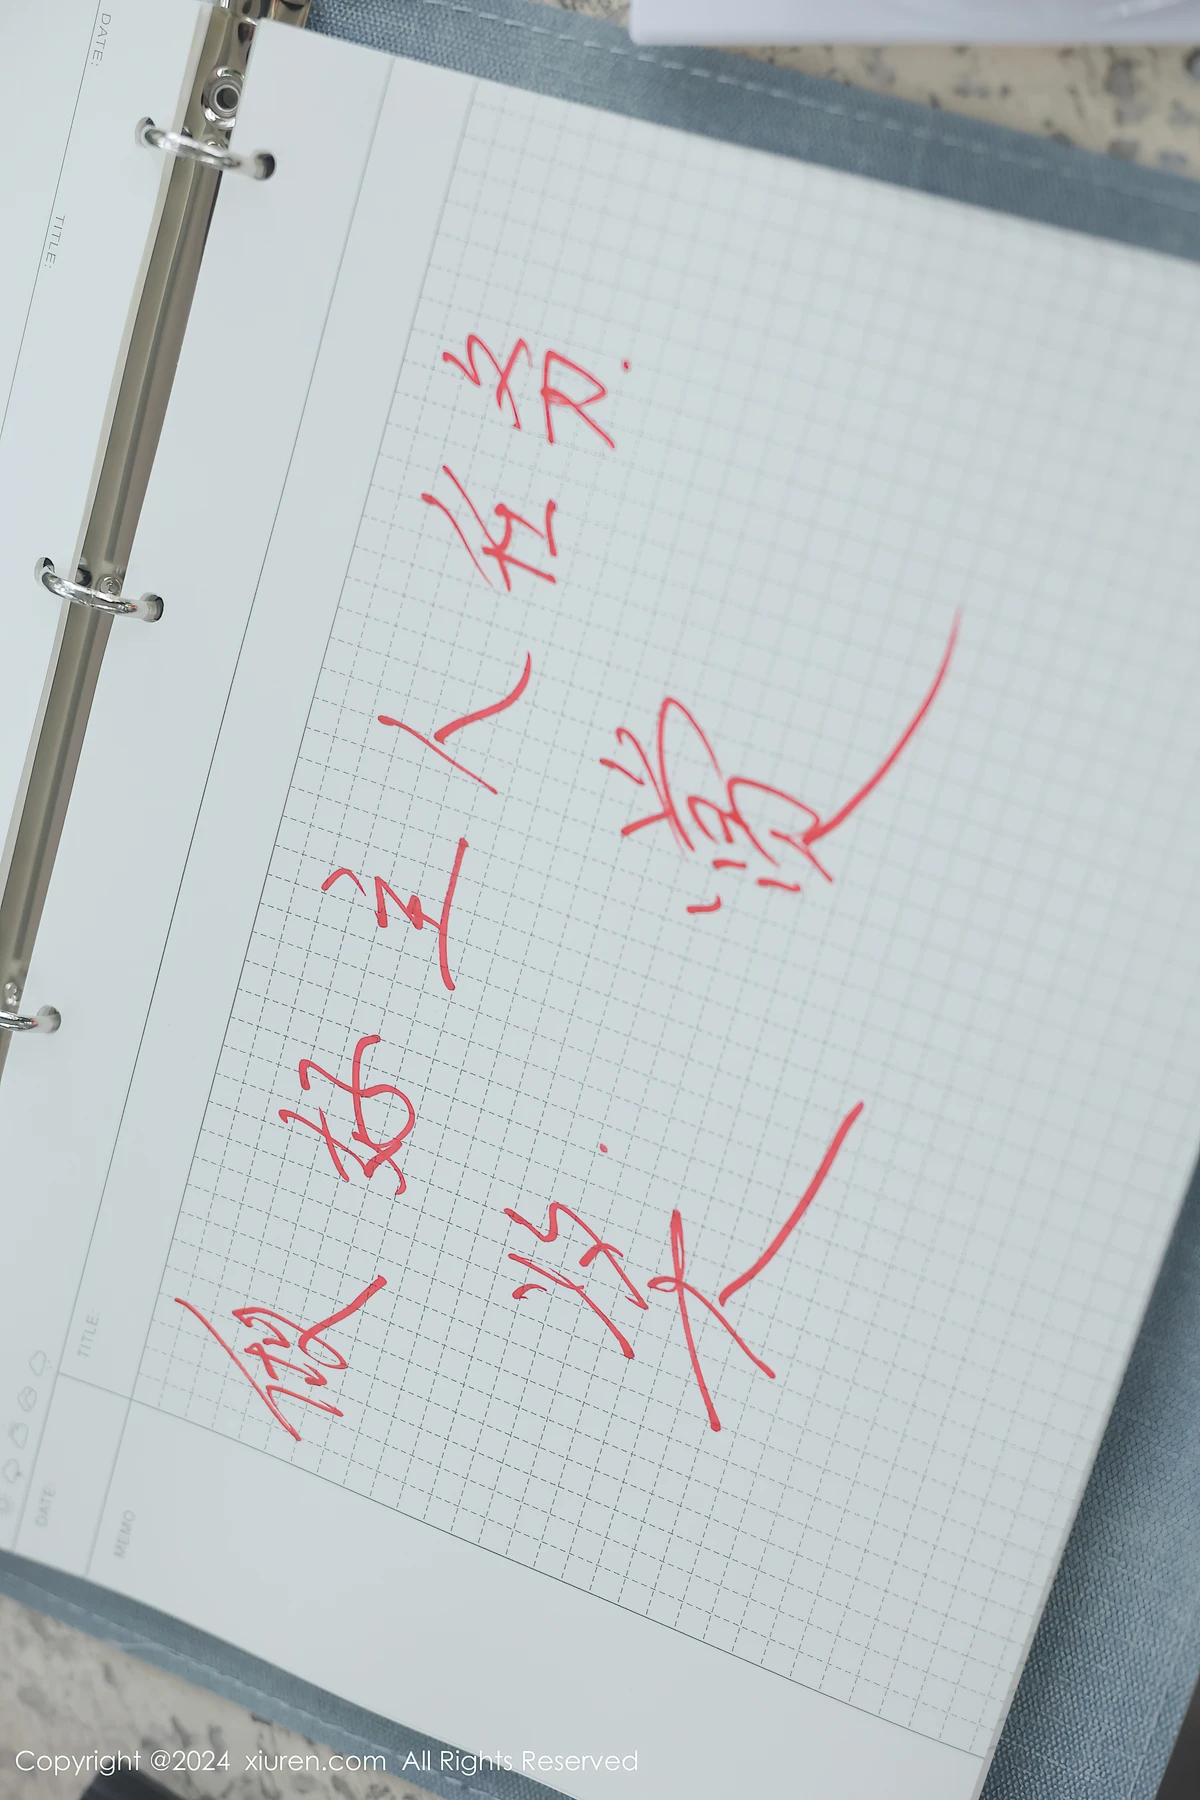 DATE:
TITLE:
TITLE:
DATE:
MEMO
做好主人任务.
奖赏
Copyright @2024 xiuren.com All Rights Reserved